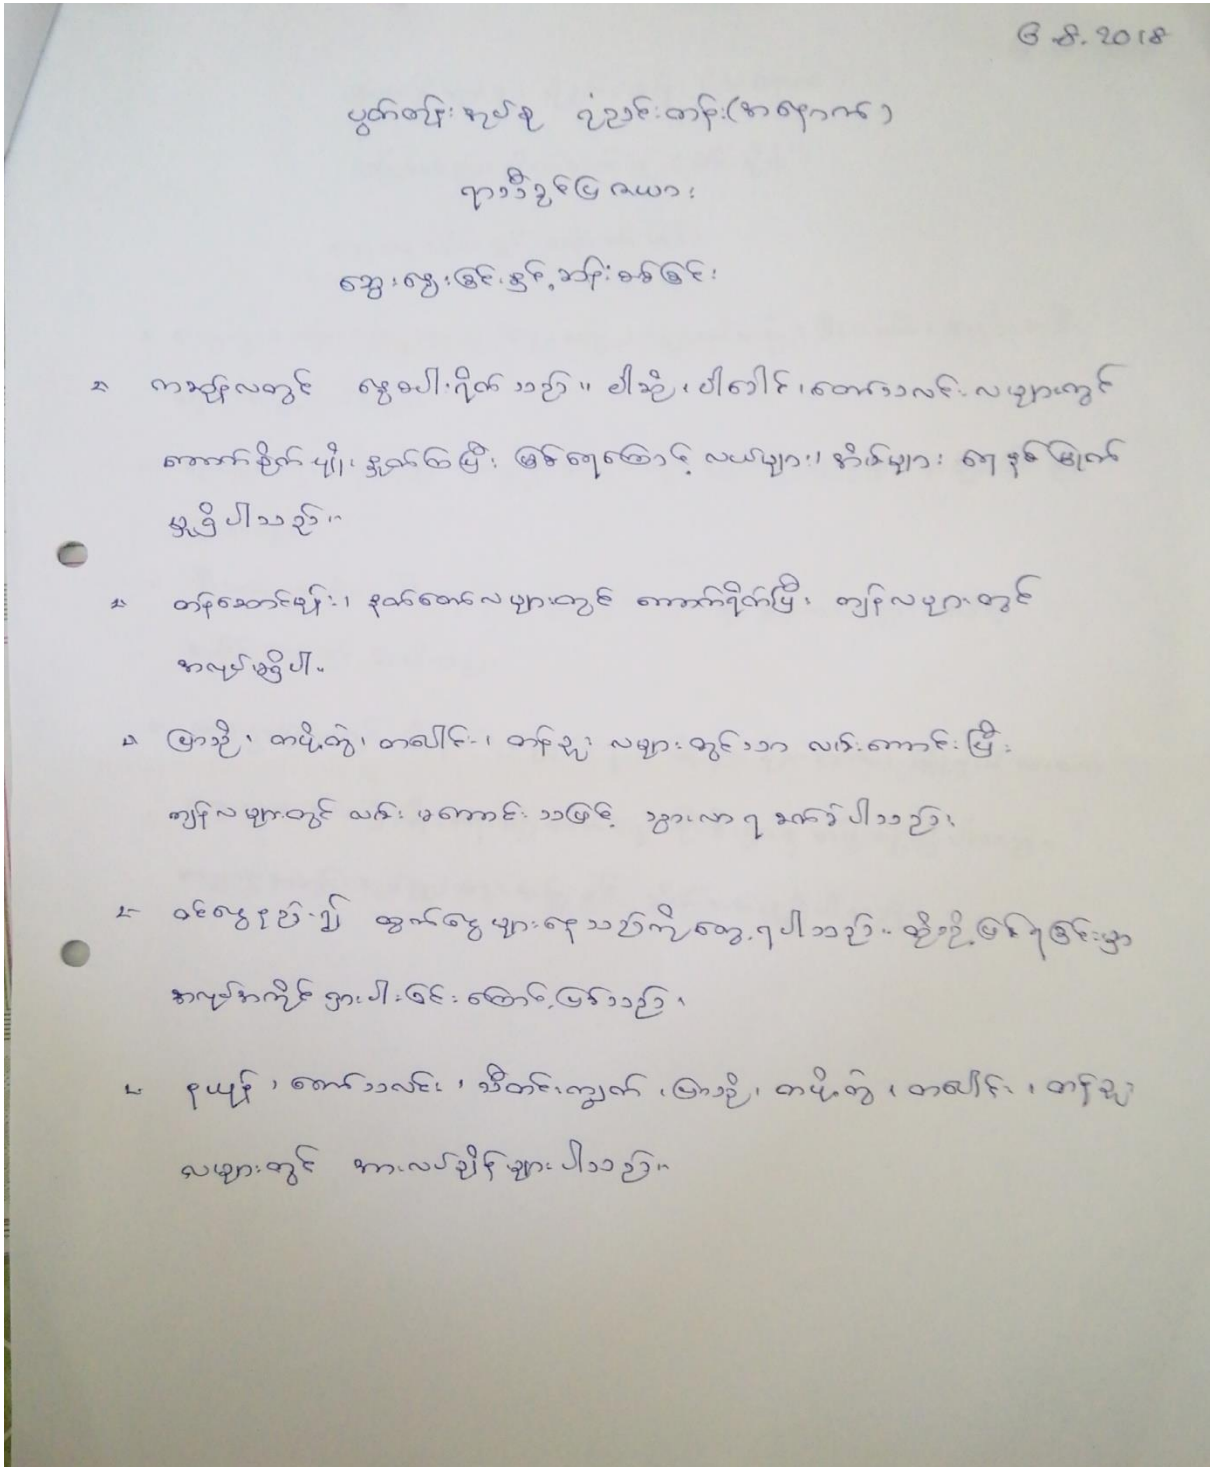 6.8.2018
ပွတ်တုန်းအုပ်စု ဂုံညင်းတန်း(အနောက်)
ရာသီခွင်ပြဇယား
ဆွေးနွေးခြင်းနှင့်ဆန်းစစ်ခြင်း
ကဆုန်လတွင် နွေစပါးရိတ်သည်။ ဝါဆို၊ ဝါခေါင်၊ တော်သလင်းလများတွင်
ကောက်စိုက်ပျိုးနှုတ်ကြပြီး မြစ်ရေကြောင့် လယ်များ၊ အိမ်များ ရေနစ်မြုပ်
မှုရှိပါသည်။
တန်ဆောင်မုန်း၊ နတ်တော်လများတွင် ကောက်ရိတ်ပြီး ကျန်လများတွင်
အလုပ်မရှိပါ။
ပြာသို၊ တပို့တွဲ၊ တပေါင်း၊ တန်ခူး လများတွင်သာ လမ်းကောင်းပြီး
ကျန်လများတွင် လမ်းမကောင်းသဖြင့် သွားလာရခက်ခဲပါသည်။
ဝင်ငွေနည်း၍ ထွက်ငွေများနေသည်ကိုတွေ့ရပါသည်။ ထိုသို့ဖြစ်ရခြင်းမှာ
အလုပ်အကိုင်ရှားပါးခြင်းကြောင့်ဖြစ်သည်။
နယုန်၊ တော်သလင်း၊ သီတင်းကျွတ်၊ ပြာသို၊ တပို့တွဲ၊ တပေါင်း၊ တန်ခူး
လများတွင် အားလပ်ချိန်များပါသည်။